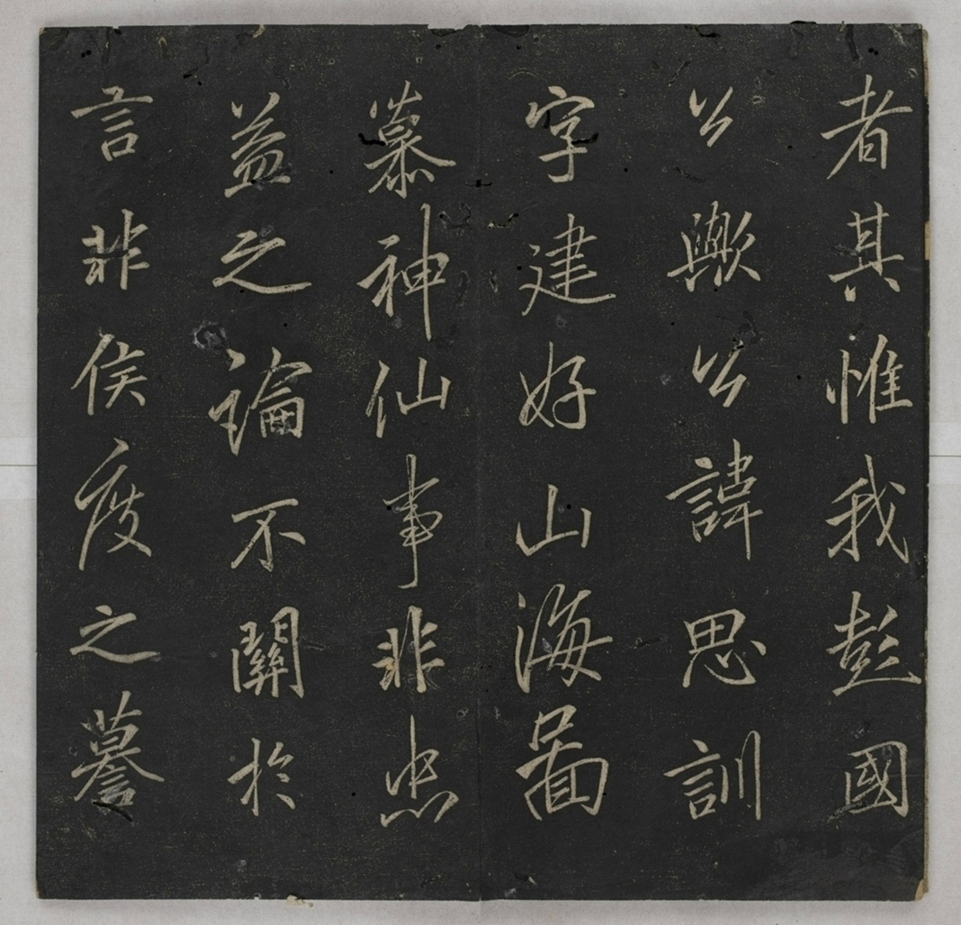 者其惟我彭國
公歟公諱思訓
字建好山海啚
慕神仙事非忠
益之論不關於
言非侯度之謩